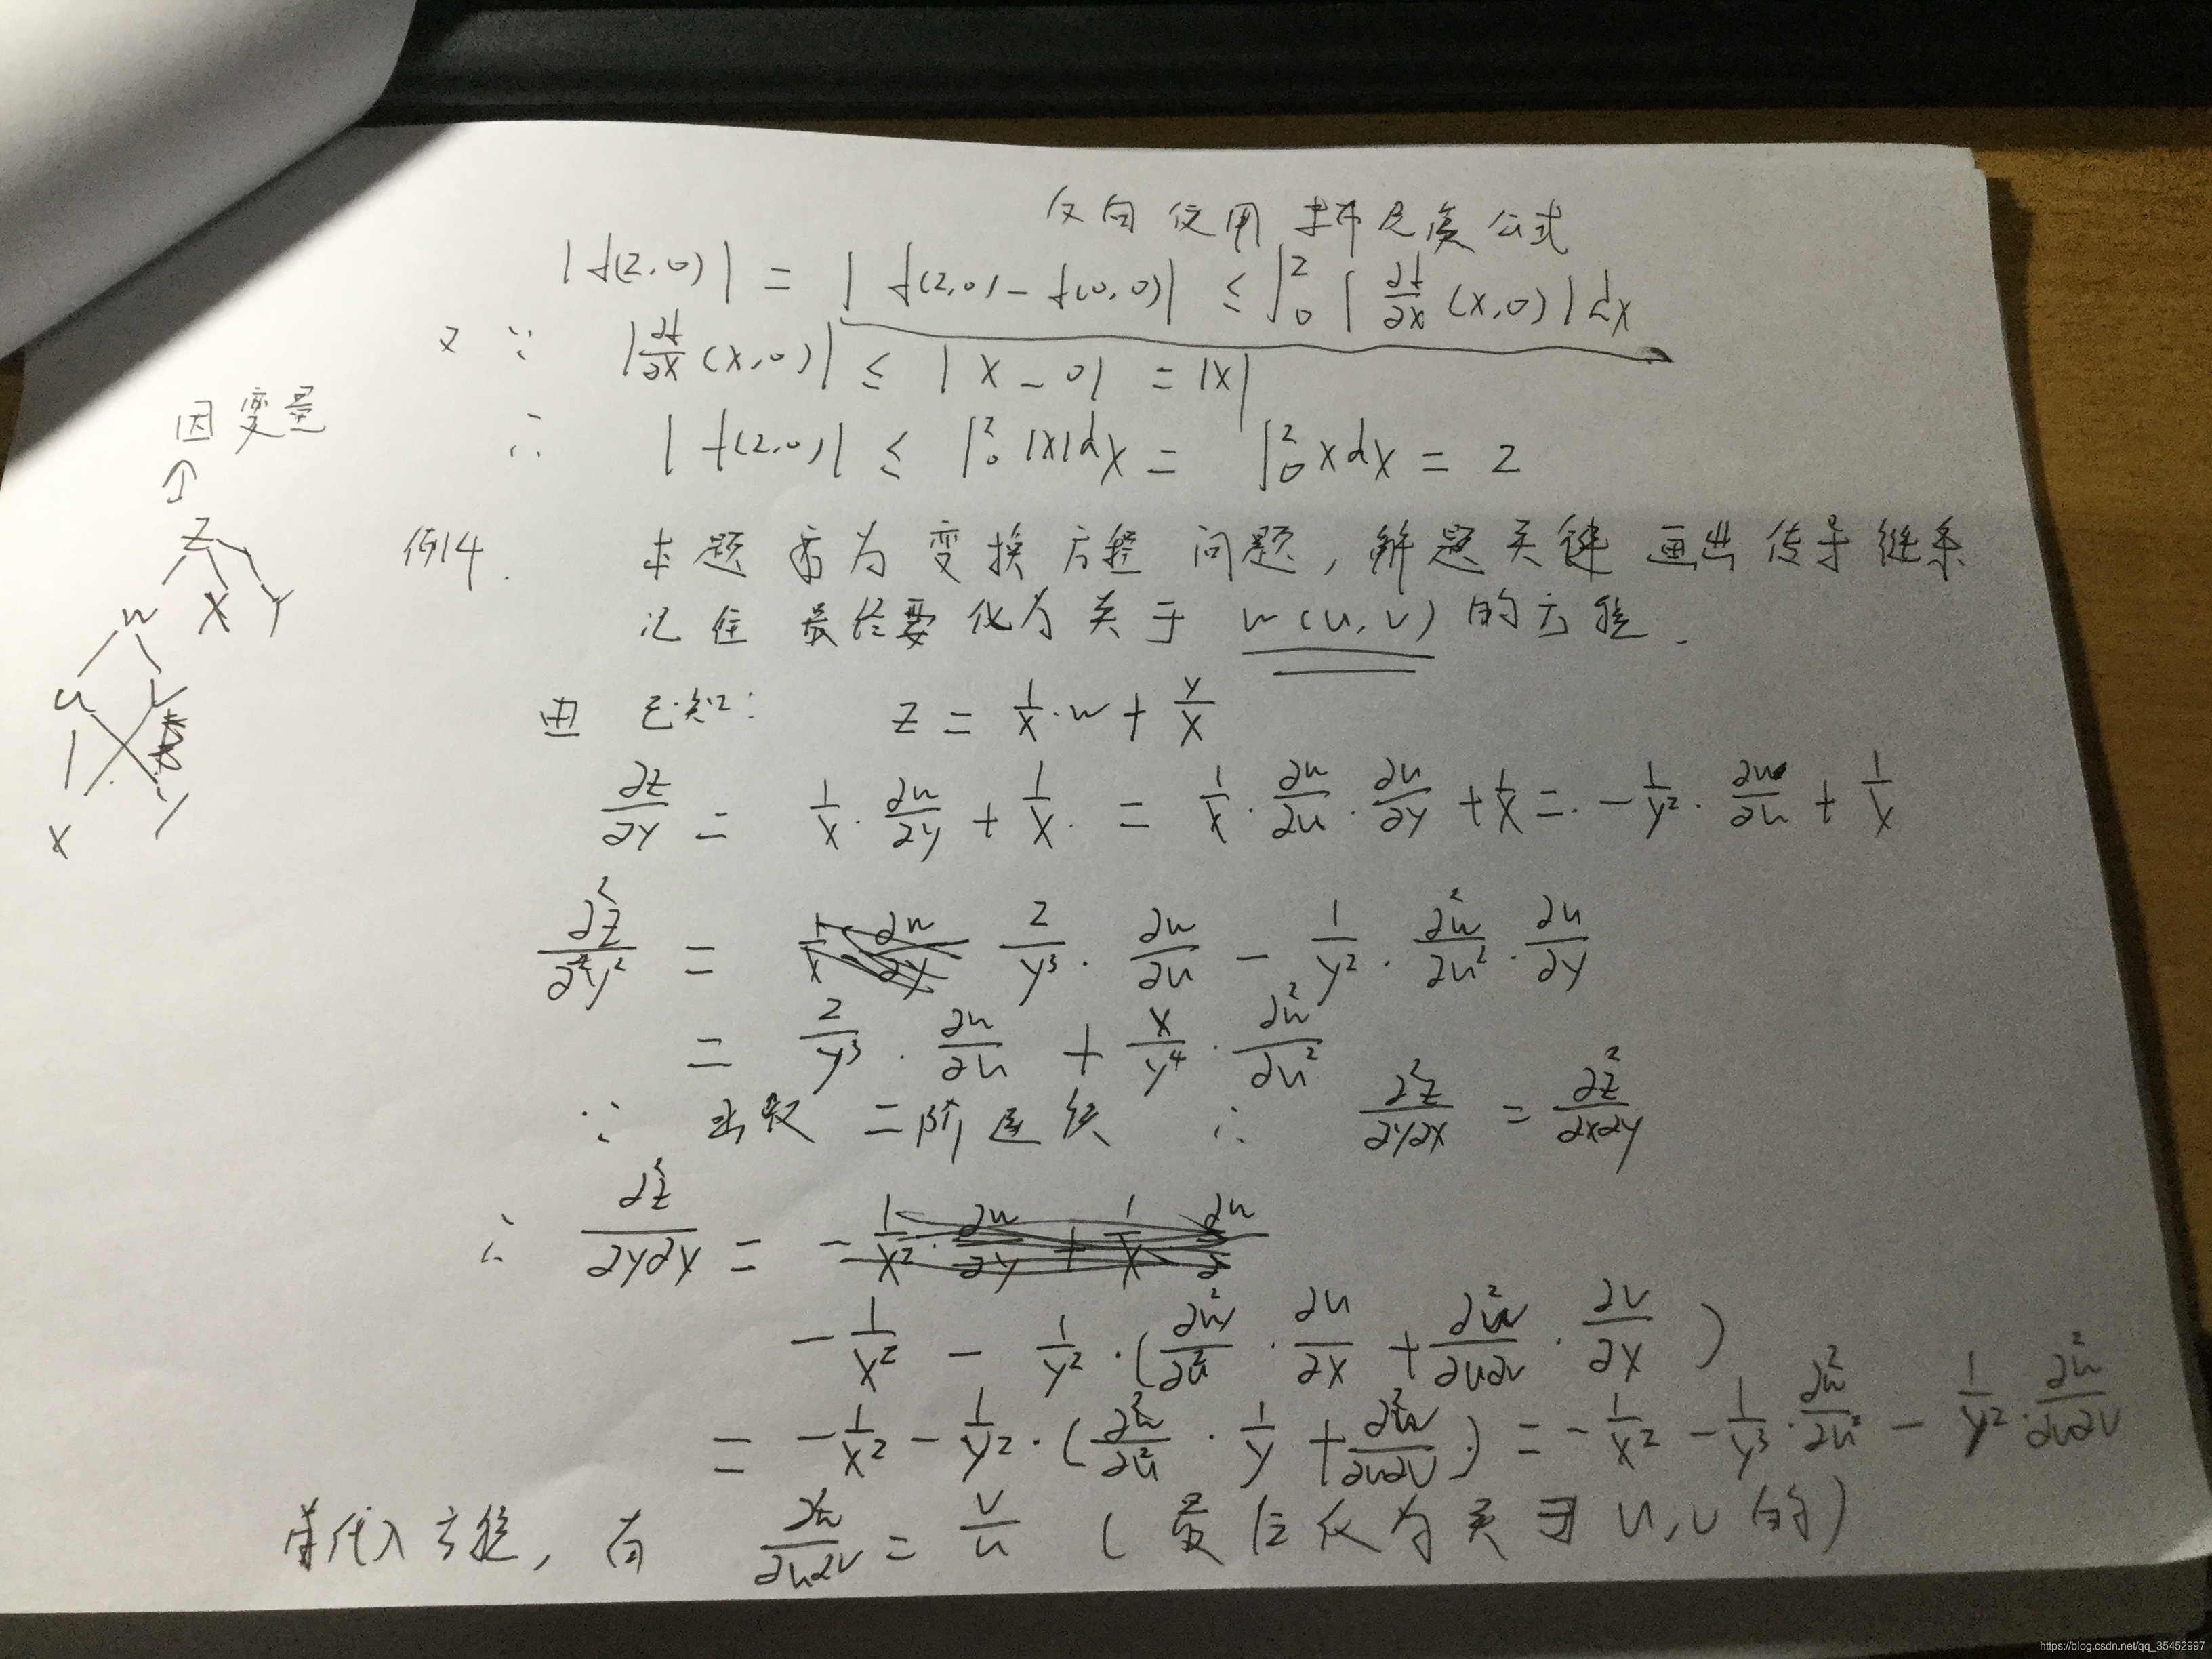 反向使用 牛布尼莫公式
|f(2,0)| = |f(2,0) - f(0,0)| ≤ ∫₀² |∂f/∂x (x,0)| dx
又 ∵ |∂f/∂x (x,0)| ≤ |x - 0| = |x|
∴ |f(2,0)| ≤ ∫₀² |x|dx = ∫₀² xdx = 2
因变量
↑
z
w x y
u v
x y
例14. 本题 为 变换方程 问题, 解题关键 画出 传导 继系
记住 最终要 化为 关于 w(u,v) 的方程.
由 已知: z = 1/x · w + y/x
∂z/∂y = 1/x · ∂w/∂y + 1/x = 1/x · ∂w/∂u · ∂u/∂y + 1/x = - 1/y² · ∂w/∂u + 1/x
∂²z/∂²y² = 2/y³ · ∂w/∂u - 1/y² · ∂²w/∂u² · ∂u/∂y
= 2/y³ · ∂w/∂u + x/y⁴ · ∂²w/∂u²
∵ 函数 二阶连续 ∴ ∂²z/∂y∂x = ∂²z/∂x∂y
∴ ∂²z/∂y∂x =
- 1/x² - 1/y² · (∂²w/∂u² · ∂u/∂x + ∂²w/∂u∂v · ∂v/∂x)
= - 1/x² - 1/y² · (∂²w/∂u² · 1/y + ∂²w/∂u∂v) = - 1/x² - 1/y³ · ∂²w/∂u² - 1/y² · ∂²w/∂u∂v
代入方程, 有 ∂²w/∂u∂v = v/u (最后化为关于 u,v 的)
https://blog.csdn.net/qq_35452997